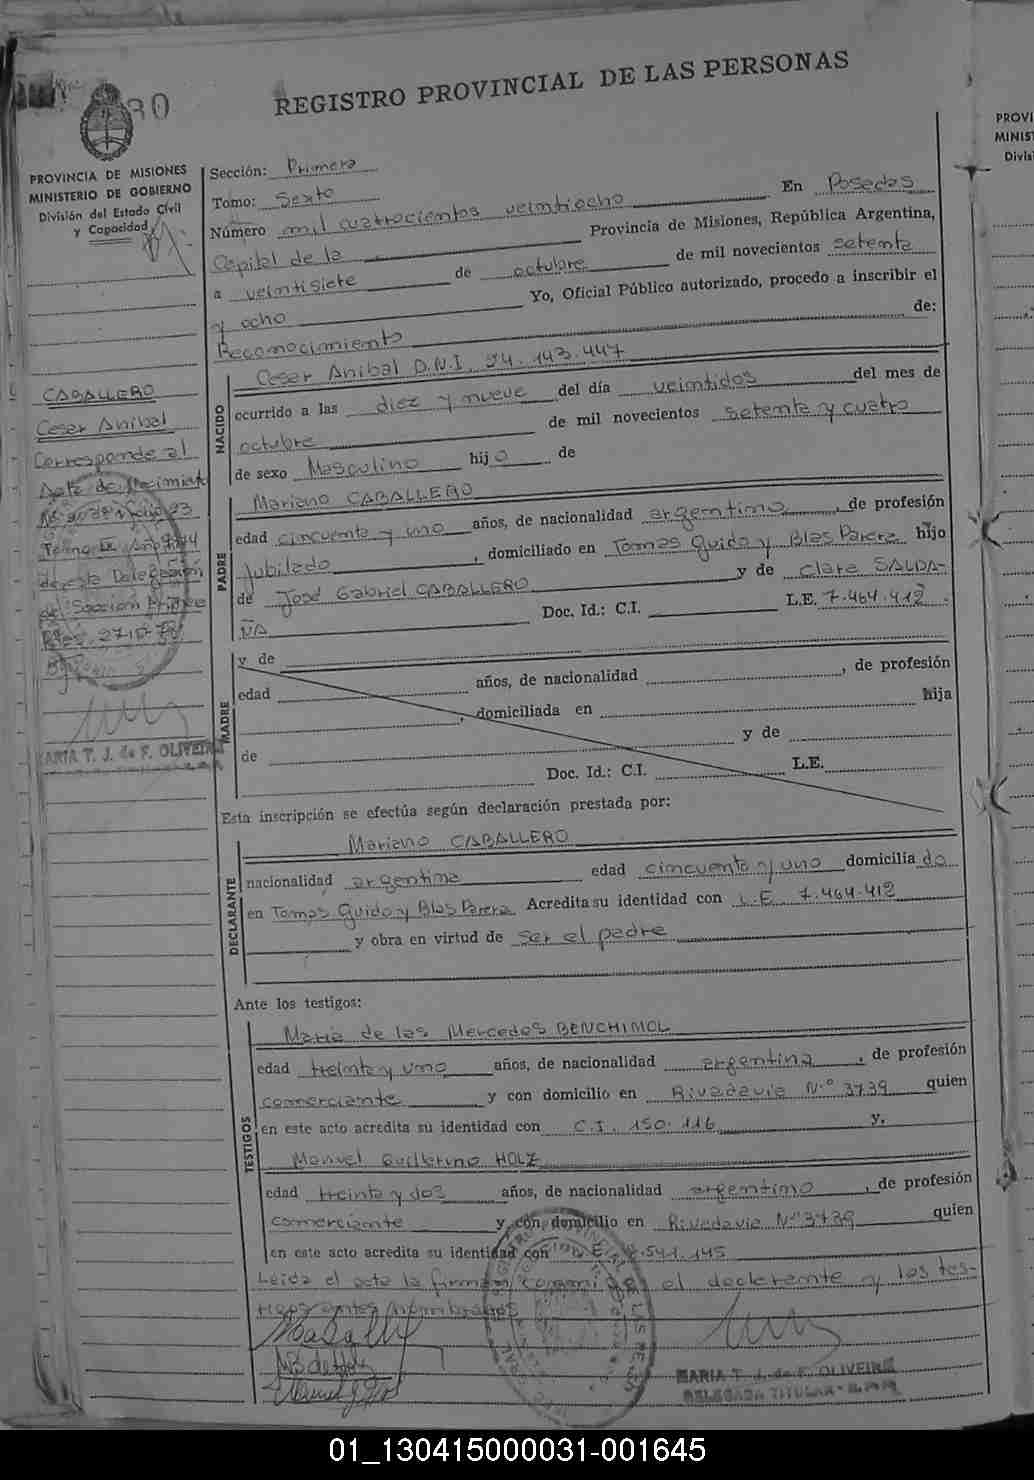 30
REGISTRO PROVINCIAL DE LAS PERSONAS
PROVINCIA DE MISIONES
MINISTERIO DE GOBIERNO
División del Estado Civil
y Capacidad
Sección: Primera
Tomo: Sexto
Número mil cuatrocientos veintiocho En Posadas
Capital de la Provincia de Misiones, República Argentina,
a veintisiete de octubre de mil novecientos setenta
y ocho Yo, Oficial Público autorizado, procedo a inscribir el
Reconocimiento de:
CABALLERO
Cesar Anibal
Corresponde al
Acta de Nacimiento
de esta Delegación
de Sección Prime
MARIA T. J. de F. OLIVEIRA
NACIDO
Cesar Anibal D.N.I. 24.143.447
ocurrido a las diez y nueve del día veintidos del mes de
octubre de mil novecientos setenta y cuatro
de sexo Masculino hijo de
PADRE
Mariano CABALLERO
edad cincuenta y uno años, de nacionalidad argentino, de profesión
Jubilado, domiciliado en Tomas Guido y Blas Parera hijo
de José Gabriel CABALLERO y de Clara SALDA-
ÑA Doc. Id.: C.I. L.E. 7.464.412
MADRE
y de
edad años, de nacionalidad , de profesión
, domiciliada en hija
de y de
Doc. Id.: C.I. L.E.
Esta inscripción se efectúa según declaración prestada por:
DECLARANTE
Mariano CABALLERO
nacionalidad argentina edad cincuenta y uno domiciliado
en Tomas Guido y Blas Parera Acredita su identidad con L.E. 7.464.412
y obra en virtud de ser el padre
Ante los testigos:
TESTIGOS
Maria de las Mercedes BENCHIMOL
edad treinta y uno años, de nacionalidad argentina, de profesión
comerciante y con domicilio en Rivadavia N.º 3739 quien
en este acto acredita su identidad con C.I. 150.116 y,
Manuel Guillermo HOLZ
edad treinta y dos años, de nacionalidad argentino, de profesión
comerciante y con domicilio en Rivadavia Nº 3739 quien
en este acto acredita su identidad con L.E. 8.541.145
Leida el acta la firman conmigo el declarante y los tes-
tigos antes nombrados
MARIA T. J. de F. OLIVEIRA
DELEGADA TITULAR
PROVI
MINIS
Divis
01_130415000031-001645